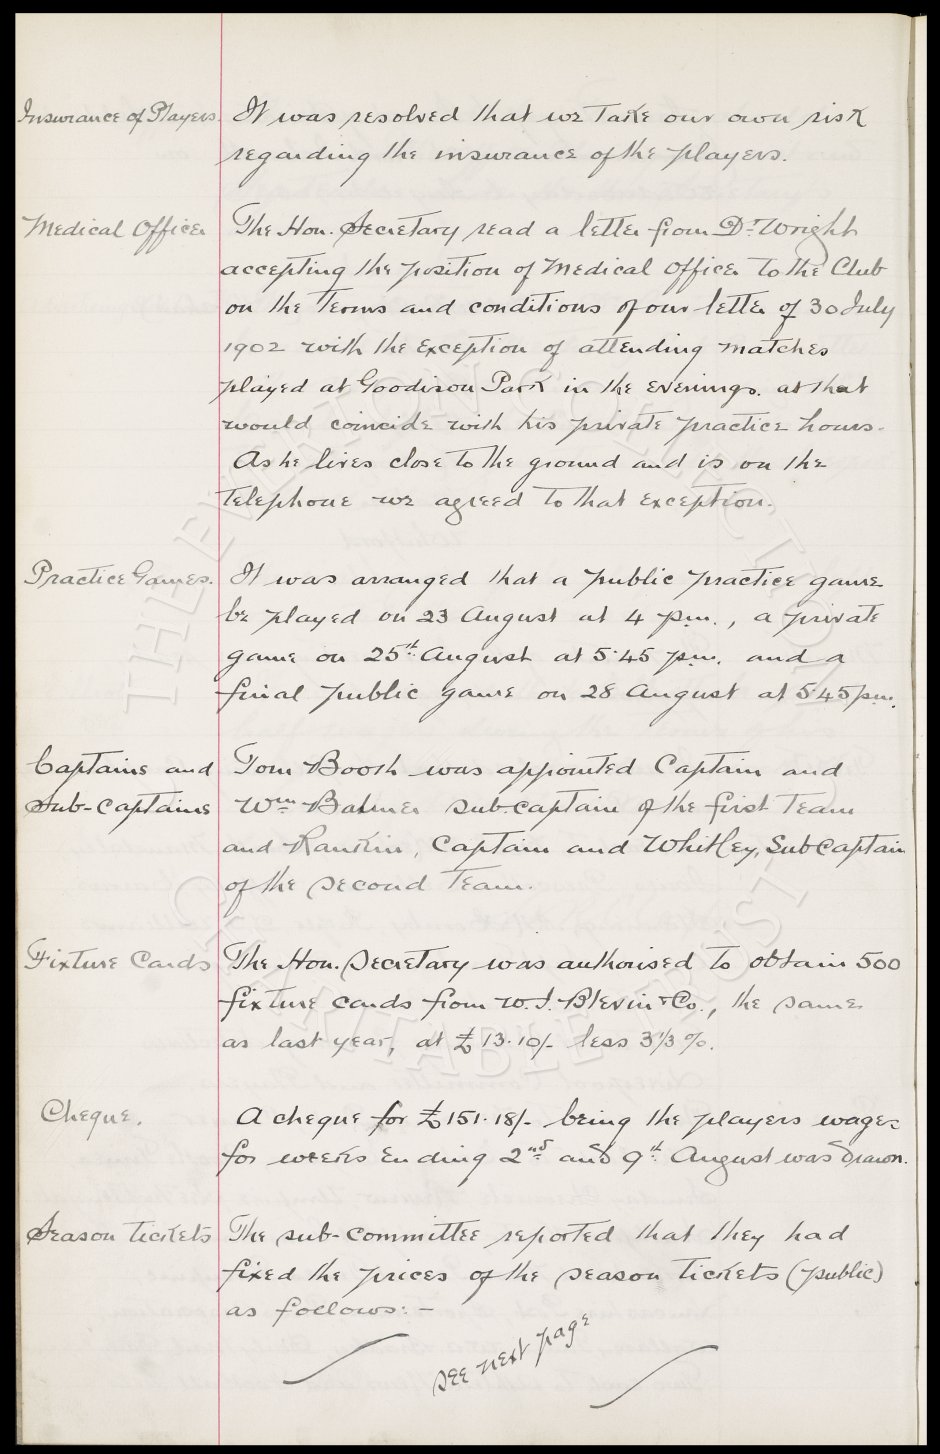 Insurance of Players.
It was resolved that we take our own risk
regarding the insurance of the players.
Medical Officer
The Hon. Secretary read a letter from Dr. Wright
accepting the position of Medical Officer to the Club
on the terms and conditions of our letter of 30 July
1902 with the exception of attending matches
played at Goodison Park in the evenings. as that
would coincide with his private practice hours.
As he lives close to the ground and is on the
telephone we agreed to that exception.
Practice Games.
It was arranged that a public practice game
be played on 23 August at 4 p.m., a private
game on 25th August at 5.45 p.m. and a
final public game on 28 August at 5.45 p.m.
Captains and
Sub-Captains
Tom Booth was appointed Captain and
Wm Balmer sub-captain of the first Team
and Rankin, Captain and Whitley, Sub Captain
of the second Team.
Fixture Cards
The Hon. Secretary was authorised to obtain 500
fixture cards from W. J. Blevin & Co., the same
as last year, at £13.10/- less 3 1/3 %.
Cheque.
A cheque for £151.18/- being the players wages
for weeks ending 2nd and 9th August was drawn.
Season tickets
The sub-committee reported that they had
fixed the prices of the season tickets (public)
as follows:-
see next page
THE EVERTON COLLECTION
CHARITABLE TRUST